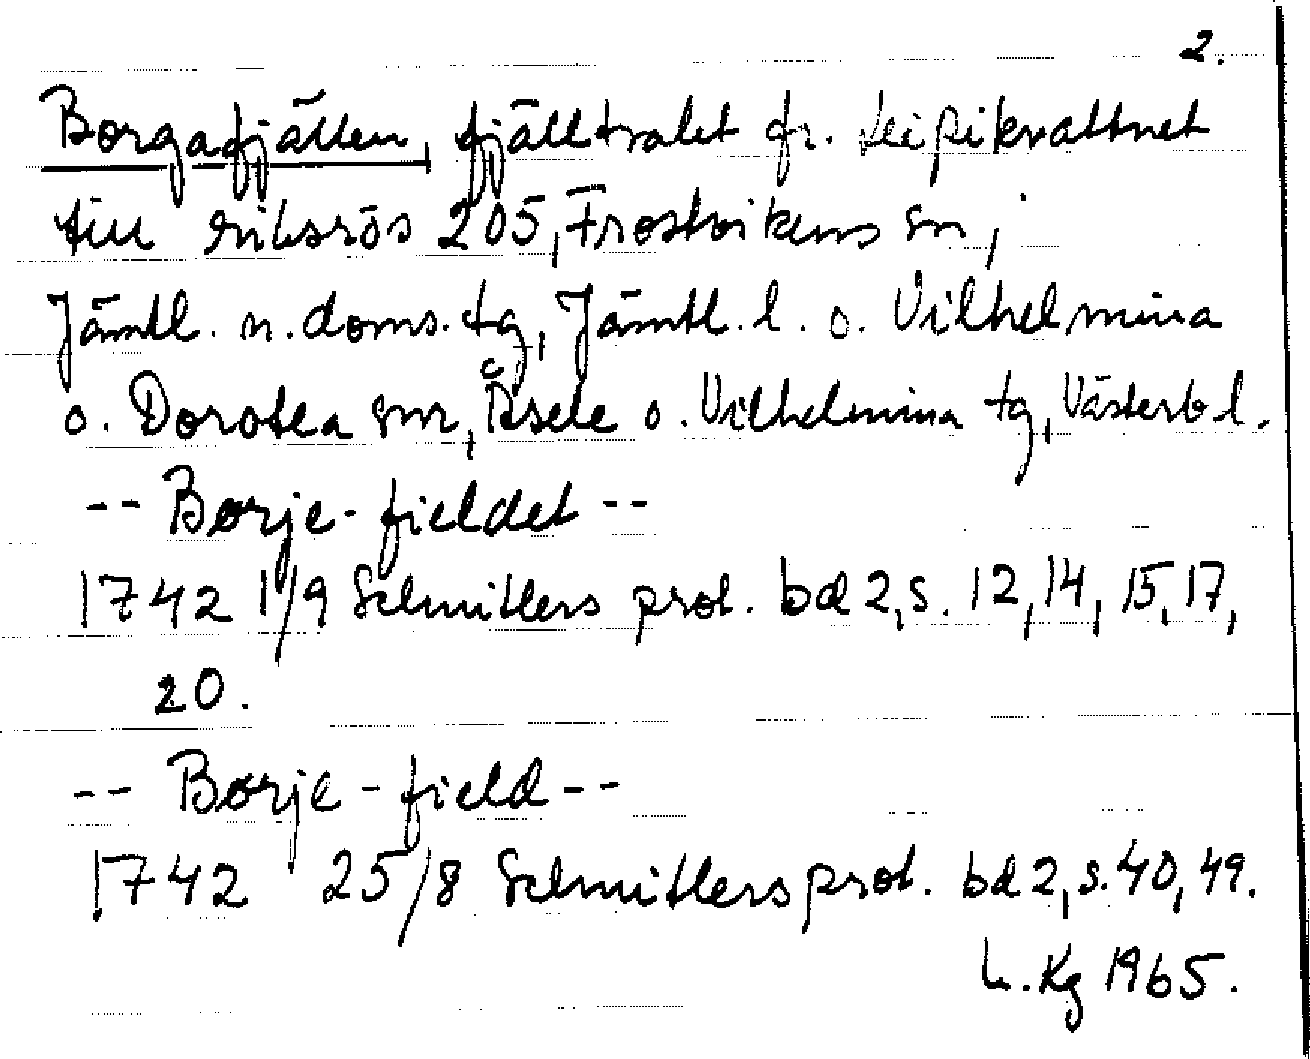 2.
Borgafjällen, fjälltrakt fr. Leipikvattnet
till riksrös 205, Frostvikens sn,
Jämtl. n. doms. tg, Jämtl. l. o. Vilhelmina
o. Dorotea snr, Åsele o. Vilhelmina tg, Västerb l.
-- Børje-fieldet --
1742 1/9 Schnitlers prot. bd 2, s. 12, 14, 15, 17,
20.
-- Børje-field --
1742 25/8 Schnitlers prot. bd 2, s. 40, 49.
Kg 1965.